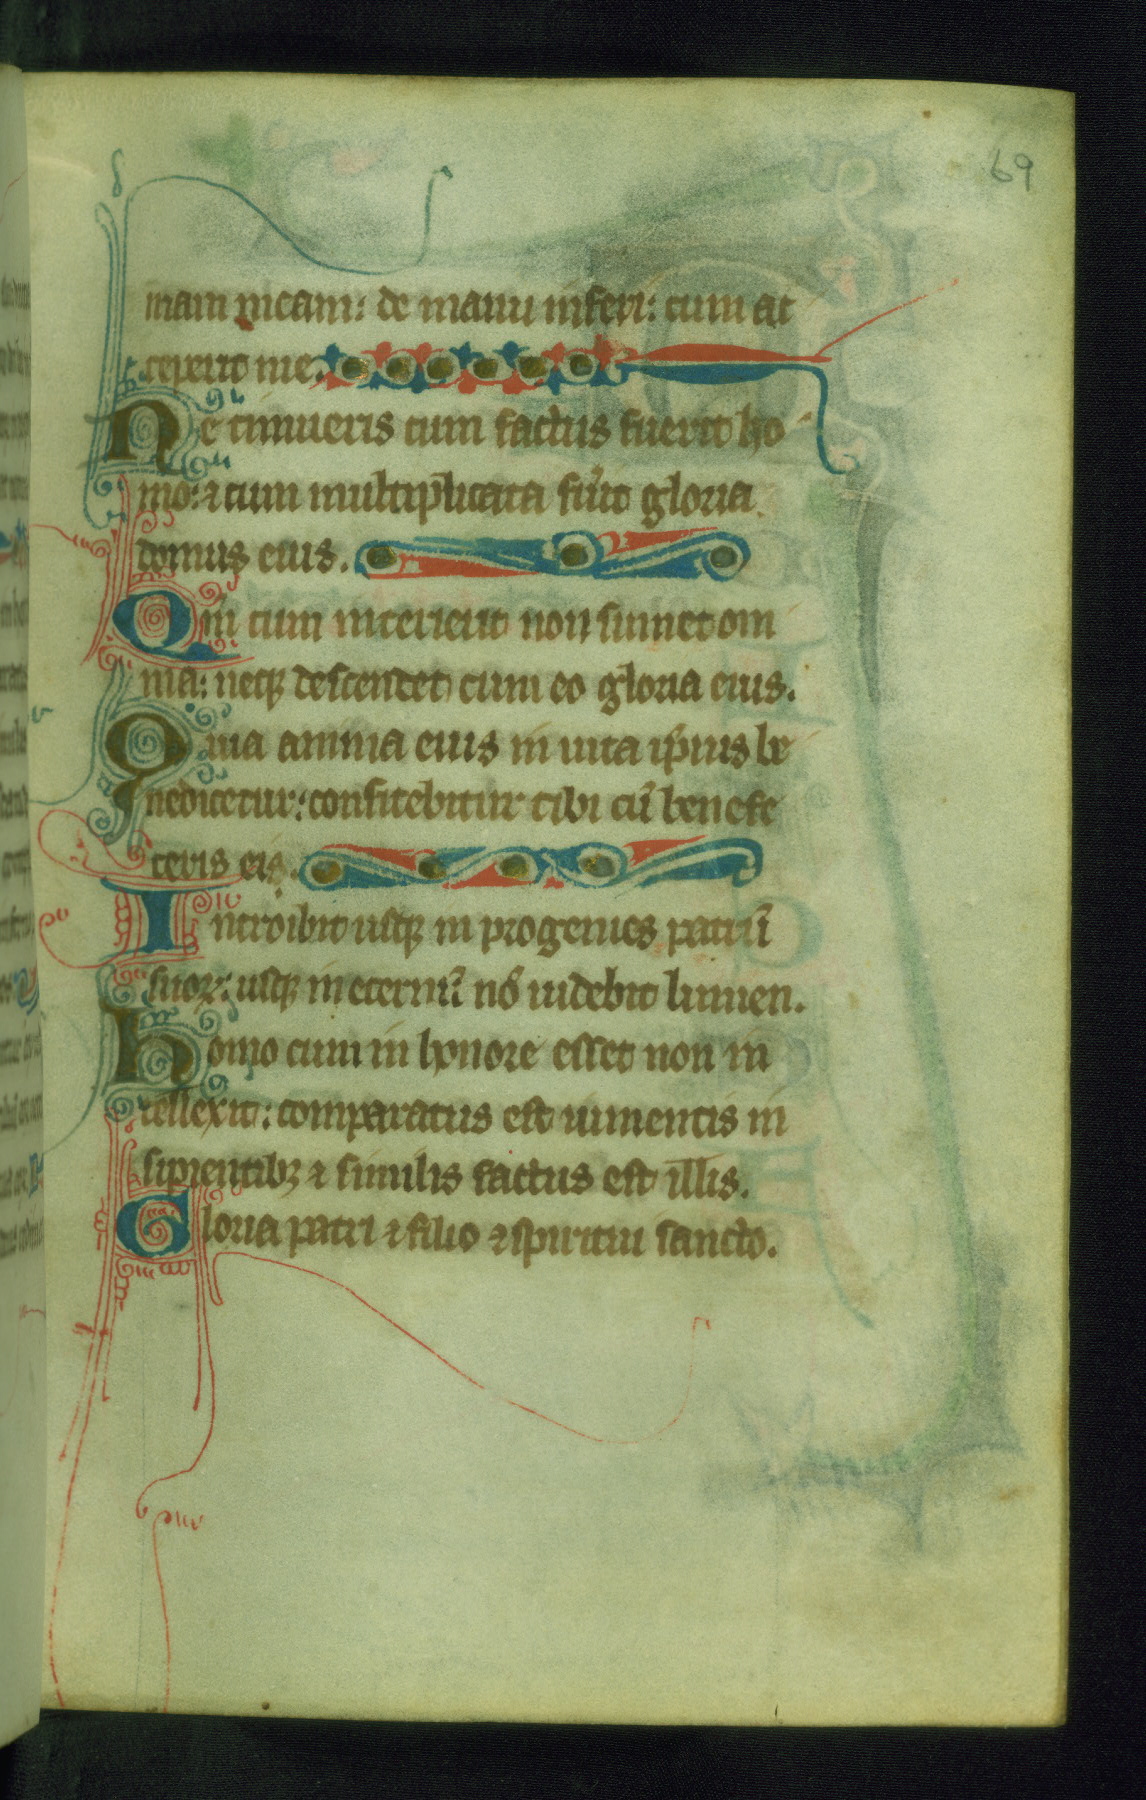 69
mam meam: de manu inferi: cum ac
ceperit me.
Ne timueris cum factus fuerit ho
mo: ⁊ cum multiplicata fu̾it gloria
domus eius.
Qm̄ cum interierit non sumet om
nia: neqꝫ descendet cum eo gloria eius.
Quia anima eius in uita ip̄ius be
nedicetur: confitebitur tibi cū benefe
ceris ei.
Introibit usqꝫ in progenies patrū
suoꝝ: usqꝫ in eternū nō uidebit lumen.
Homo cum in honore esset non in
tellexit: comparatus est iumentis in
sipientibꝫ ⁊ similis factus est illis.
Gloria patri ⁊ filio ⁊ spiritui sancto.